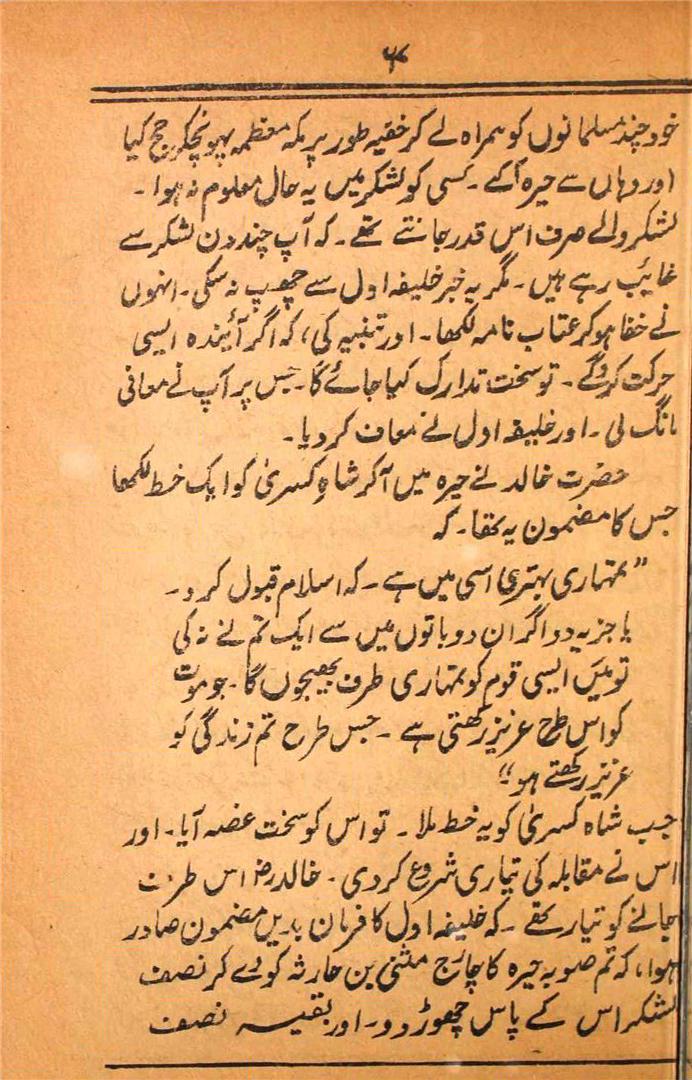 ۶۸
خود چند مسلمانوں کو ہمراہ لے کر خفیہ طور پر مکہ معظمہ پہونچکر حج کیا
اور وہاں سے حیرہ آگئے۔ کسی کو لشکر میں یہ حال معلوم نہ ہوا۔
لشکر والے صرف اس قدر جانتے تھے۔ کہ آپ چند دن لشکر سے
غائب رہے ہیں۔ مگر یہ خبر خلیفہ اول سے چھپ نہ سکی۔ انہوں
نے خفا ہو کر عتاب نامہ لکھا۔ اور تنبیہ کی، کہ اگر آئیندہ ایسی
حرکت کرو گے۔ تو سخت تدارک کیا جائے گا۔ جس پر آپ نے معافی
مانگ لی۔ اور خلیفہ اول نے معاف کر دیا۔
حضرت خالد نے حیرہ میں آکر شاہِ کسریٰ کو ایک خط لکھا
جس کا مضمون یہ تھا۔ کہ
"تمہاری بہتری اسی میں ہے۔ کہ اسلام قبول کرو۔
یا جزیہ دو اگر ان دو باتوں میں سے ایک تم نے نہ کی
تو میں ایسی قوم کو تمہاری طرف بھیجوں گا۔ جو موت
کو اس طرح عزیز رکھتی ہے۔ جس طرح تم زندگی کو
عزیز رکھتے ہو"
جب شاہ کسریٰ کو یہ خط ملا۔ تو اس کو سخت غصہ آیا۔ اور
اس نے مقابلہ کی تیاری شروع کر دی۔ خالدرض اس طرف
جانے کو تیار تھے۔ کہ خلیفہ اول کا فرمان بدیں مضمون صادر
ہوا، کہ تم صوبہ حیرہ کا چارج مثنیٰ بن حارثہ کو دے کر نصف
لشکر اس کے پاس چھوڑ دو۔ اور بقیہ نصف